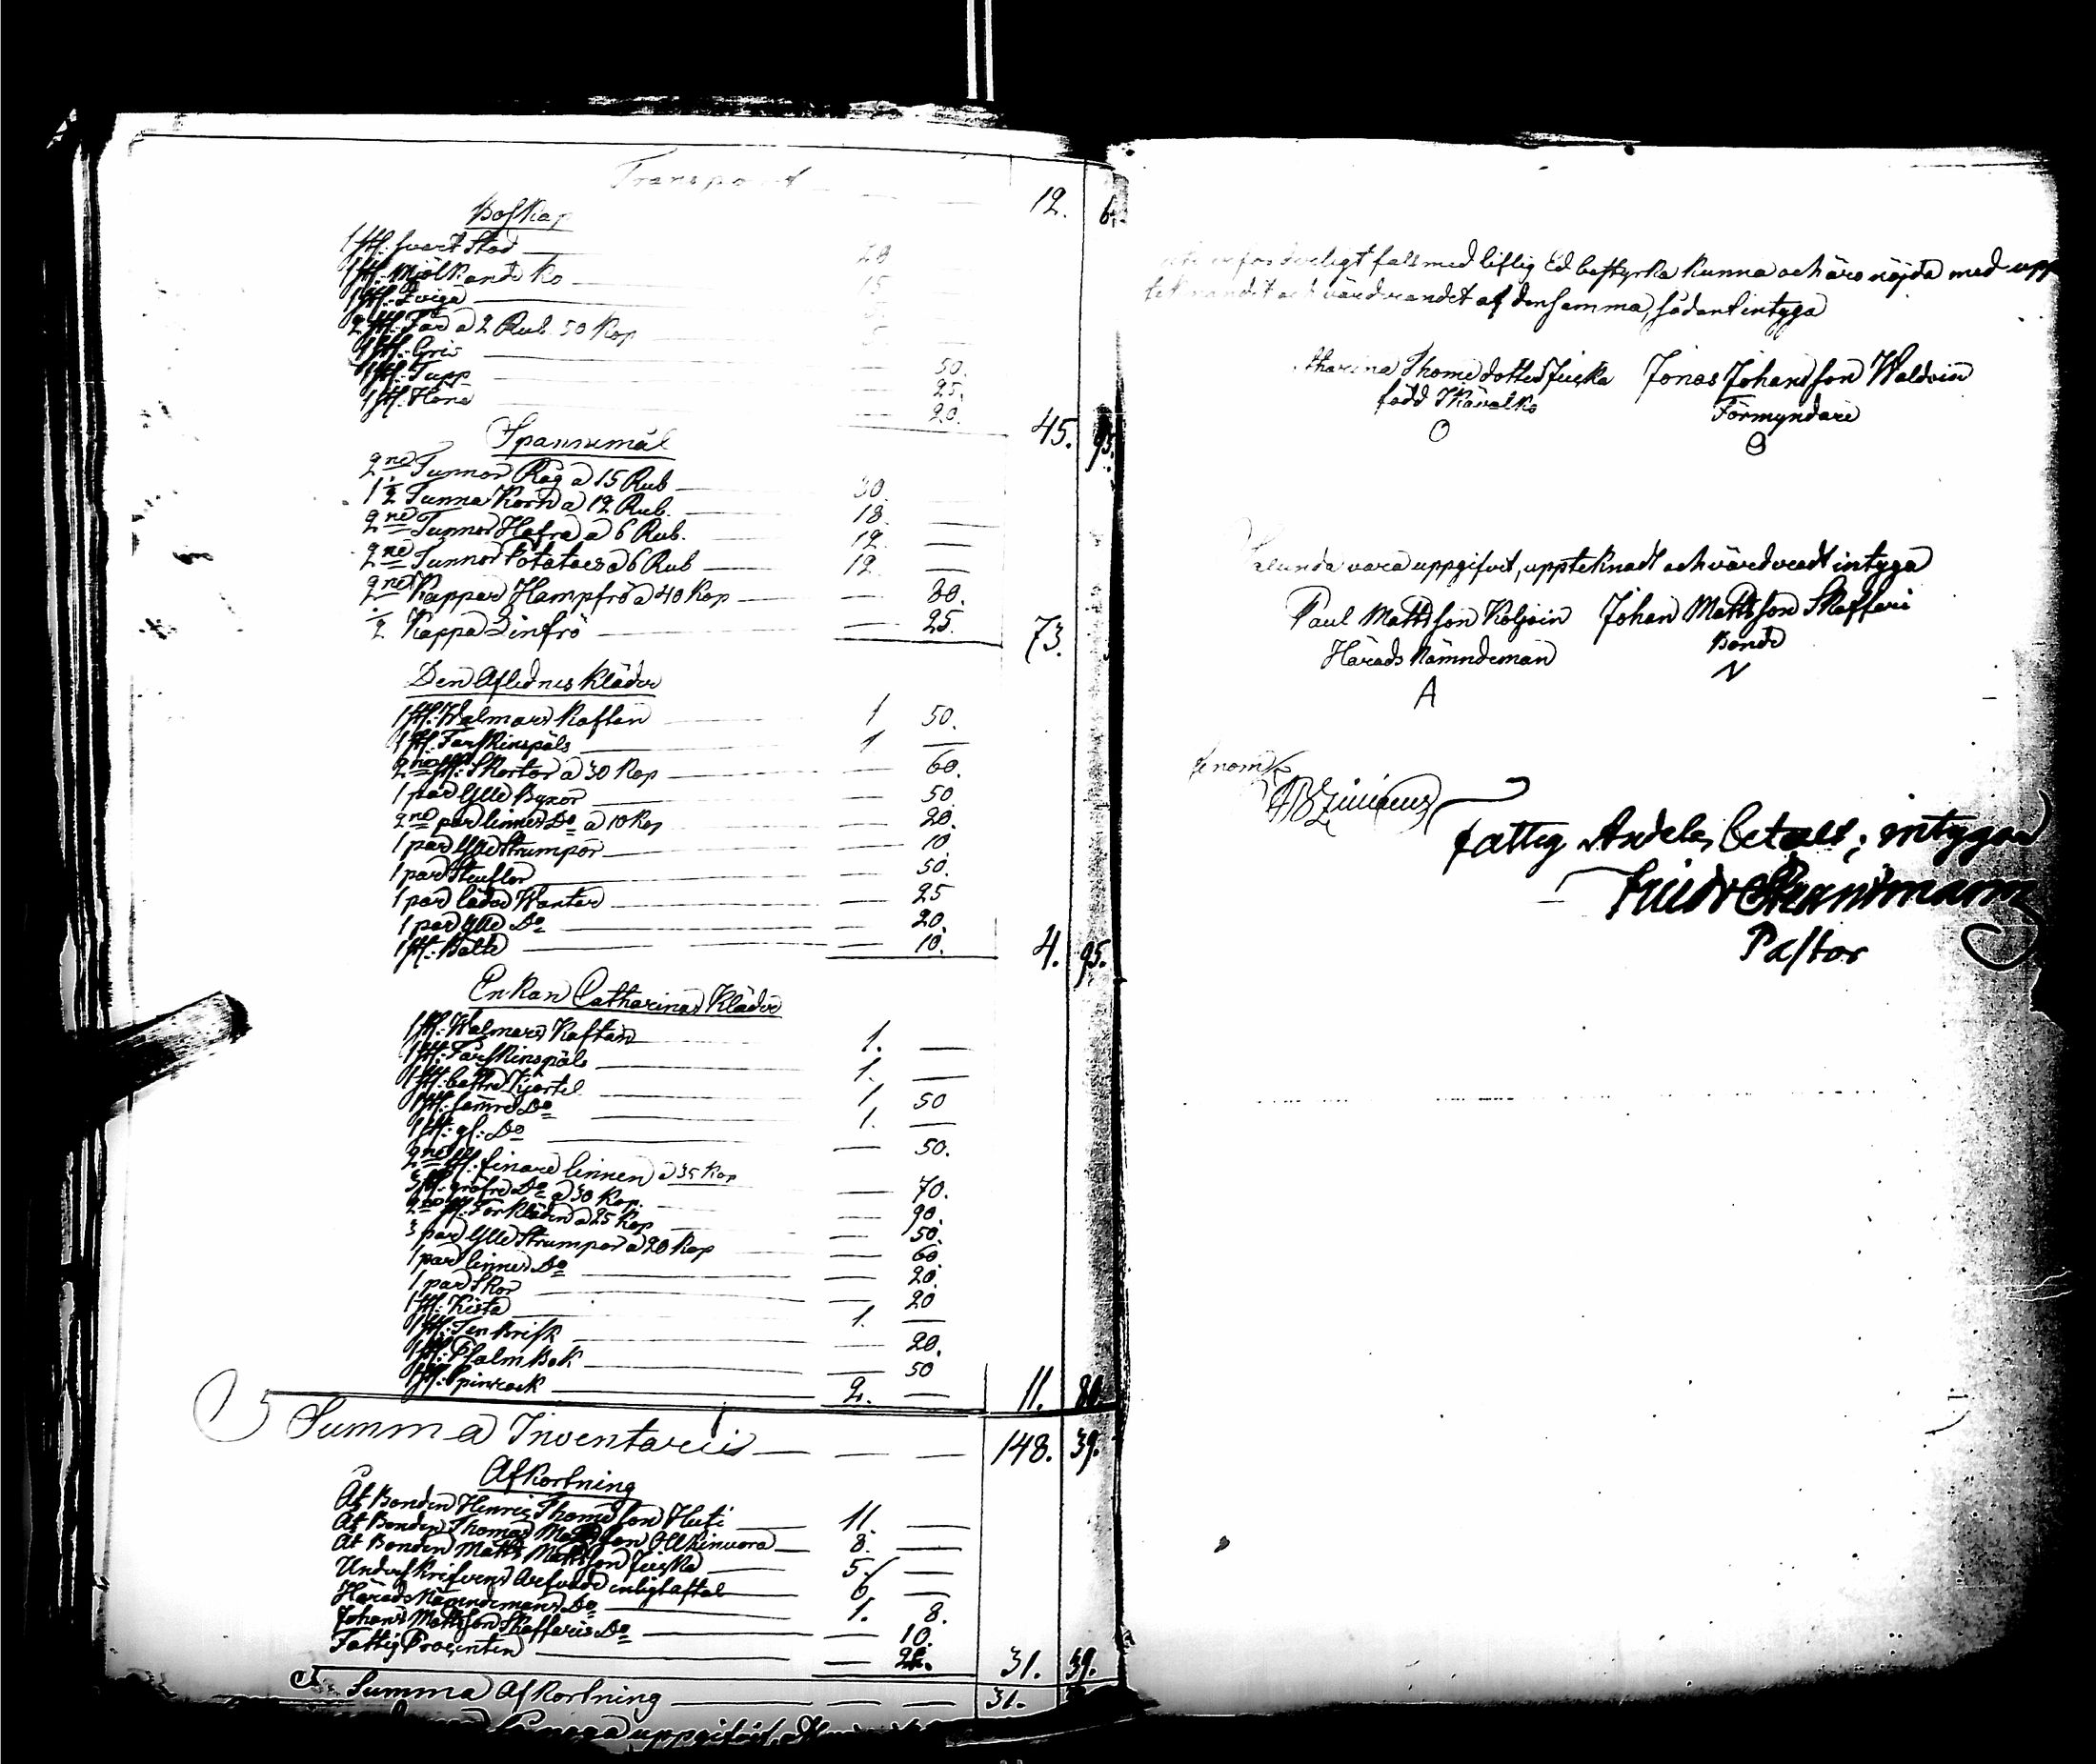 Transport 12. 6
Boskap
1 st: svart Stod 20
1 st: Mjölkande ko 15
1 st: Qviga
2 st: Får a 2 Rub. 50 Kop 5
1 st: Gris 50.
1 st: Tupp 25.
1 st: Höna 20. 45. 95.
Spannemål
2ne Tunnor Råg a 15 Rub 30.
1 1/2 Tunna Korn a 12 Rub. 18.
2ne Tunnor Hafra a 6 Rub. 12.
2ne Tunnor Potatoes a 6 Rub 12.
2ne Kappar Hampfrö a 40 Kop 80.
1/2 Kappa Linfrö 25. 73.
Den Aflednes Kläder
1 st: Walmars Kaftan 1 50.
1 st: Fårskinspäls 1
2ne st: Skortor a 30 Kop 60.
1 par Ylle Byxor 50
2ne par linne Do a 10 Kop 20.
1 par Ylle Strumpor 10
1 par Steuflor 50.
1 par läder Wantar 25
1 par Ylle Do 20.
1 st: Bälte 10. 4. 95.
Enkan Catharinas Kläder
1 st: Walmars Kaftan 1.
1 st: Fårskinspäls 1.
1 st: bättre Kjortel 1 50
1 st: sämre Do 1.
1 st: gl: Do 50.
2ne st: finare linnen a 35 Kop 70.
3 st: gröfre Do a 30 Kop. 90.
2ne st: Förkläden a 25 Kop 50.
3 par Ylle Strumpor a 20 Kop 60
1 par linne Do 20.
1 par Skor 20
1 st: Kista 1.
1 st: 20.
1 st: Psalm Bok 50
1 st: Spinrock 2. 11. 80.
Summa Inventarii 148. 39.
Afkortning
Åt Bonden Henric Thomasson Huti 11.
Åt Bonden Thomas Mattsson 8.
Åt Bonden Matts Mattsson Juska 5
Underskrifvens Arfvode enligt aftal 6
Härads Nämndemans Do 1. 8.
Johans Mattsson Skaffaris Do 10.
Fattig Procenten 31. 39.
Summa Afkortning 31.
uppgifvit
erforderligt fall med liflig Ed bestyrka kunna och äro nöjda med upp
och värderandet af densamma, sådant intyga
Thomedotter Juska Jonas Johansson Waldoin
född Förmyndare
O
uppgifvit, uppteknadt och värderadt intyga
Paul Mattsson Koljoin Johan Mattsson Skaffari
Härads Nämndeman Bonde
A N
genom
fattig Andelen betalt; intygar
Pastor